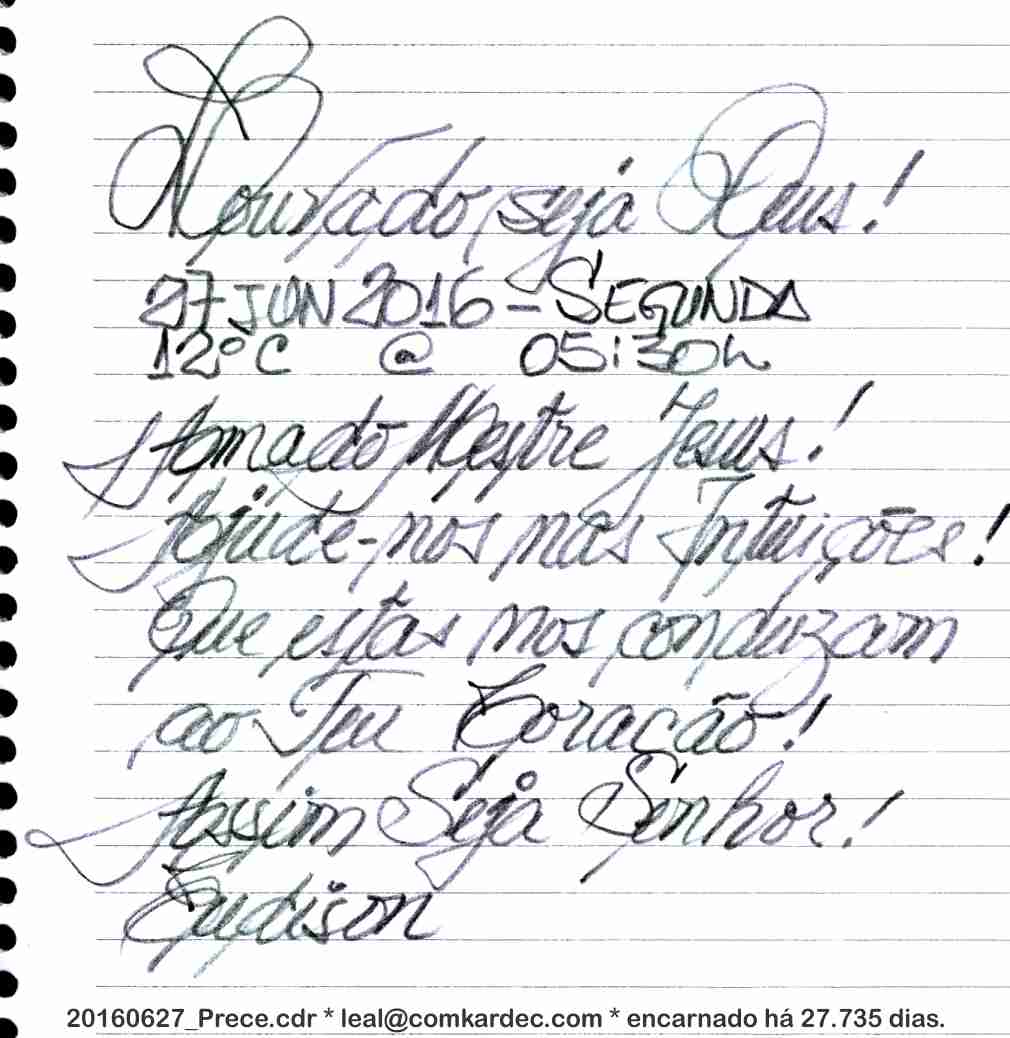 Louvado seja Deus!
27 JUN 2016 - SEGUNDA
12°C @ 05:30h
Amado Mestre Jesus!
Ajude-nos nas Intuições!
Que estas nos conduzam
ao Teu Coração!
Assim Seja Senhor!
20160627_Prece.cdr * leal@comkardec.com * encarnado há 27.735 dias.